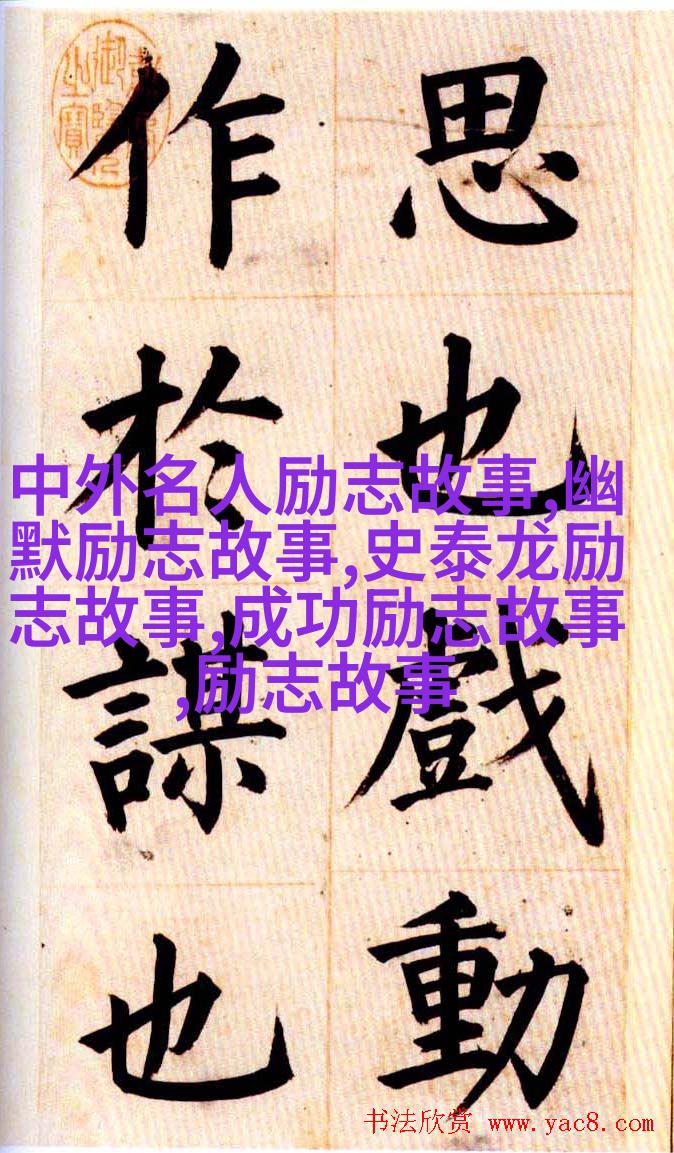 思也戲動
作於謀也
中外名人励志故事,幽
默励志故事,史泰龙励
志故事,成功励志故事
,励志故事
书法欣赏 www.yac8.com